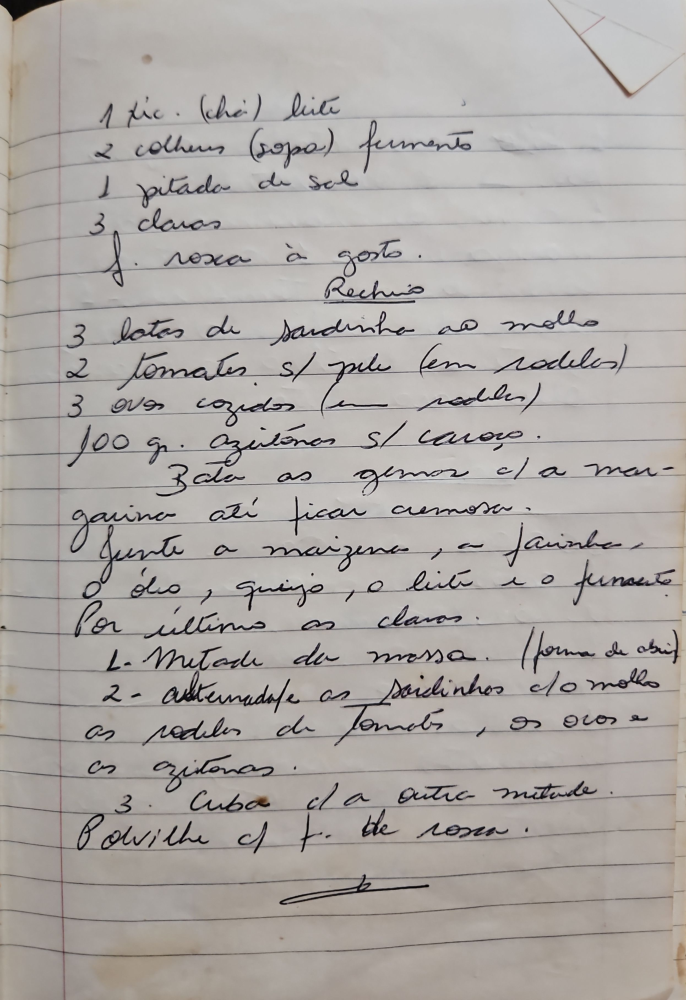 1 xic. (chá) leite
2 colheres (sopa) fermento
1 pitada de sal
3 claras
f. rosca à gosto.
Recheio
3 latas de sardinha ao molho
2 tomates s/ pele (em rodelas)
3 ovos cozidos (em rodelas)
100 gr. azeitonas s/ caroço.
Bata as gemas c/ a mar-
garina até ficar cremosa.
Junte a maizena, a farinha,
o óleo, queijo, o leite e o fermento
Por último as claras.
1- Metade da massa. (forma de abrir)
2- alternada/e as sardinhas c/o molho
as rodelas de tomate, os ovos e
as azeitonas.
3. Cubra c/ a outra metade.
Polvilhe c/ f. de rosca.